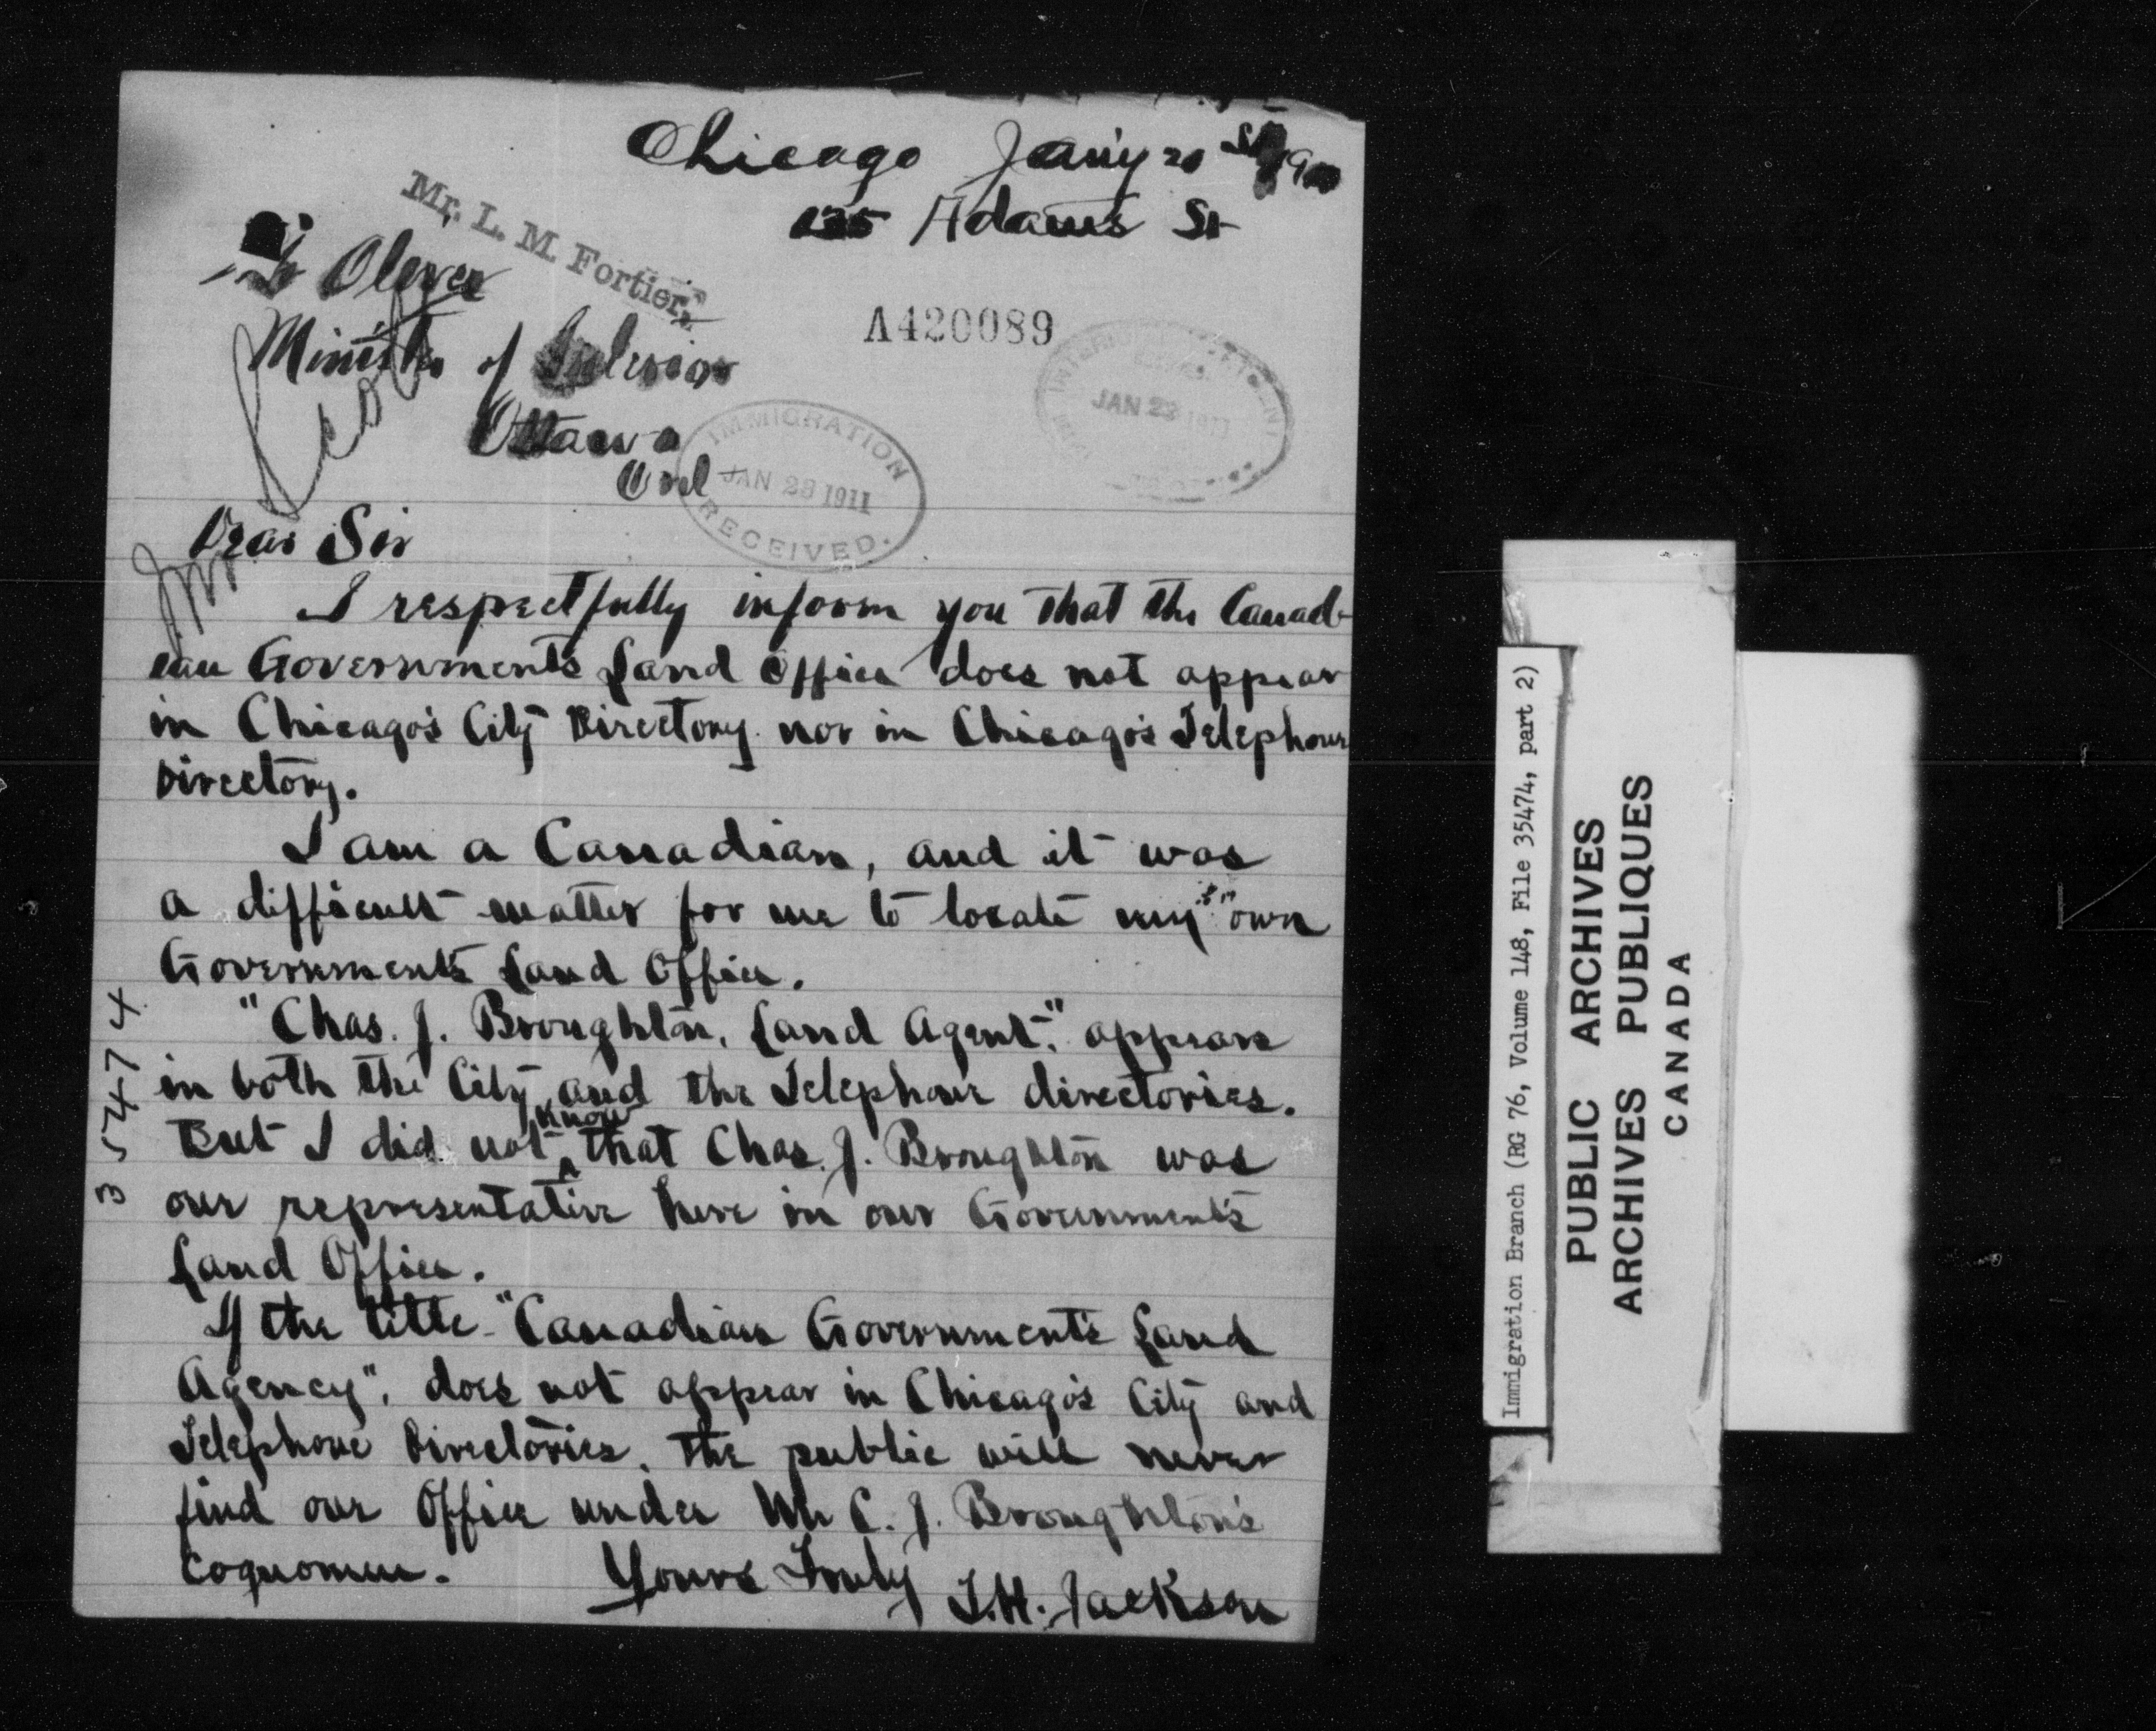 Chicago Jan'y 20
135 Adams St
Mr. L. M. Fortier,
Oliver
Minister of Interior
Ottawa
Ont
A420089
JAN 23 1911
IMMIGRATION
JAN 23 1911
RECEIVED.
Scott
Dear Sir
I respectfully inform you that the Canad-
ian Government's Land Office does not appear
in Chicago's City Directory nor in Chicago's Telephone
Directory.
I am a Canadian, and it was
a difficult matter for me to locate my own
Government's Land Office.
"Chas. J. Broughton, Land Agent," appears
in both the City and the Telephone directories.
But I did not know that Chas. J. Broughton was
our representative here in our Government's
Land Office.
If the title - "Canadian Government's Land
Agency", does not appear in Chicago's City and
Telephone Directories, the public will never
find our Office under Mr C. J. Broughton's
cognomen.
Yours Truly
T.H. Jackson
35474
Immigration Branch (RG 76, Volume 148, File 35474, part 2)
PUBLIC ARCHIVES
ARCHIVES PUBLIQUES
CANADA